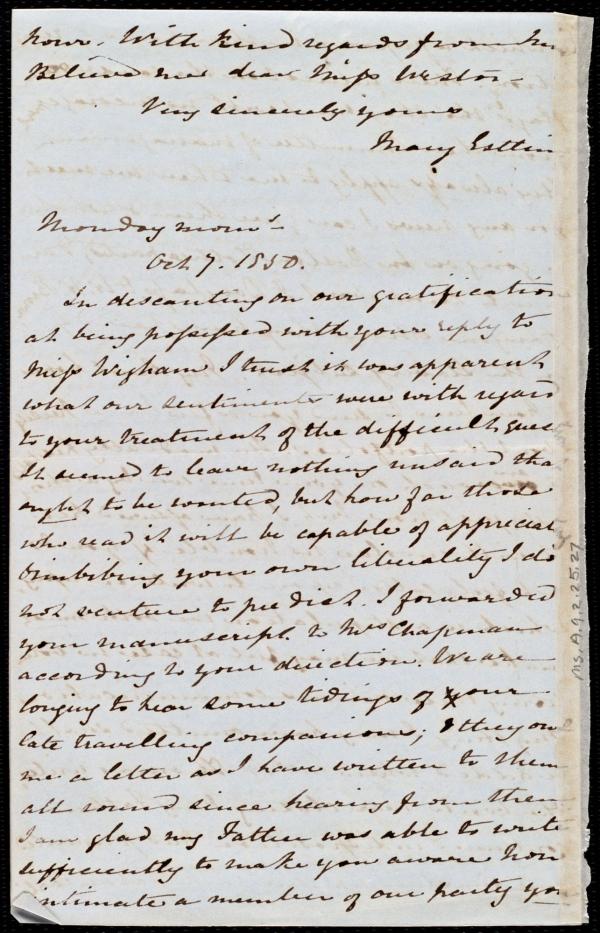 hour. With kind regards from
Believe me dear Miss Weston
Very sincerely yours
Mary Estlin
Monday morng
Oct 7. 1850.
In descanting on our gratification
at being possessed with your reply to
Miss Wigham I trust it was apparent
what our sentiments were with regard
to your treatment of the difficult ques
It seemed to leave nothing unsaid tha
ought to be wanted, but how far those
who read it will be capable of appreciat
& imbibing your own liberality I do
not venture to predict. I forwarded
your manuscript to Mrs Chapman
according to your direction. We are
longing to hear some tidings of your
late travelling companions; they ow
me a letter as I have written to them
all round since hearing from them
I am glad my Father was able to write
sufficiently to make you aware how
intimate a member of our party you
Ms. A.9.2.25.27